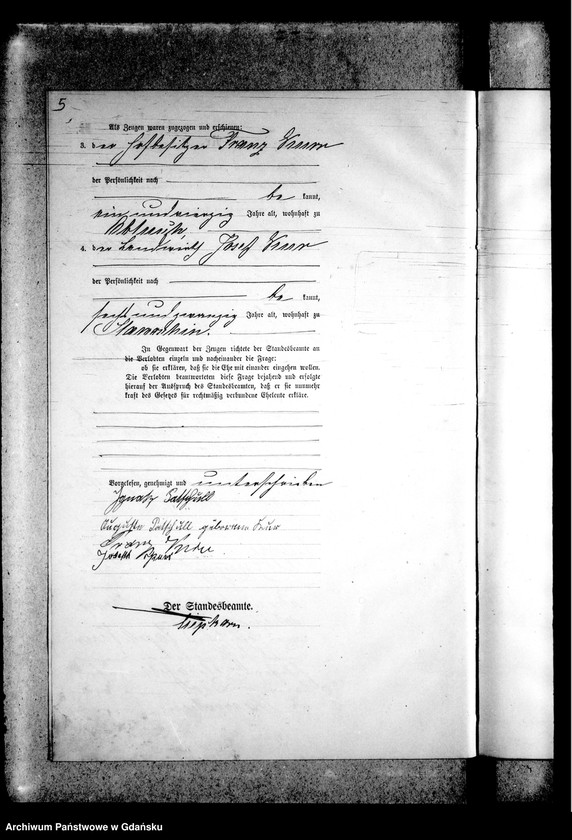 5,
Als Zeugen waren zugezogen und erschienen:
3. der Hofbesitzer Franz
der Persönlichkeit nach
be kannt,
einundvierzig Jahre alt, wohnhaft zu
4. der Landwirth Josef
der Persönlichkeit nach
be kannt,
sechsundzwanzig Jahre alt, wohnhaft zu
In Gegenwart der Zeugen richtete der Standesbeamte an
die Verlobten einzeln und nacheinander die Frage:
ob sie erklären, daß sie die Ehe mit einander eingehen wollen.
Die Verlobten beantworteten diese Frage bejahend und erfolgte
hierauf der Ausspruch des Standesbeamten, daß er sie nunmehr
kraft des Gesetzes für rechtmäßig verbundene Eheleute erkläre.
Vorgelesen, genehmigt und unterschrieben
Ignatz Patschull
Auguste Patschull geborene
Franz
Joseph
Der Standesbeamte.
Archiwum Państwowe w Gdańsku